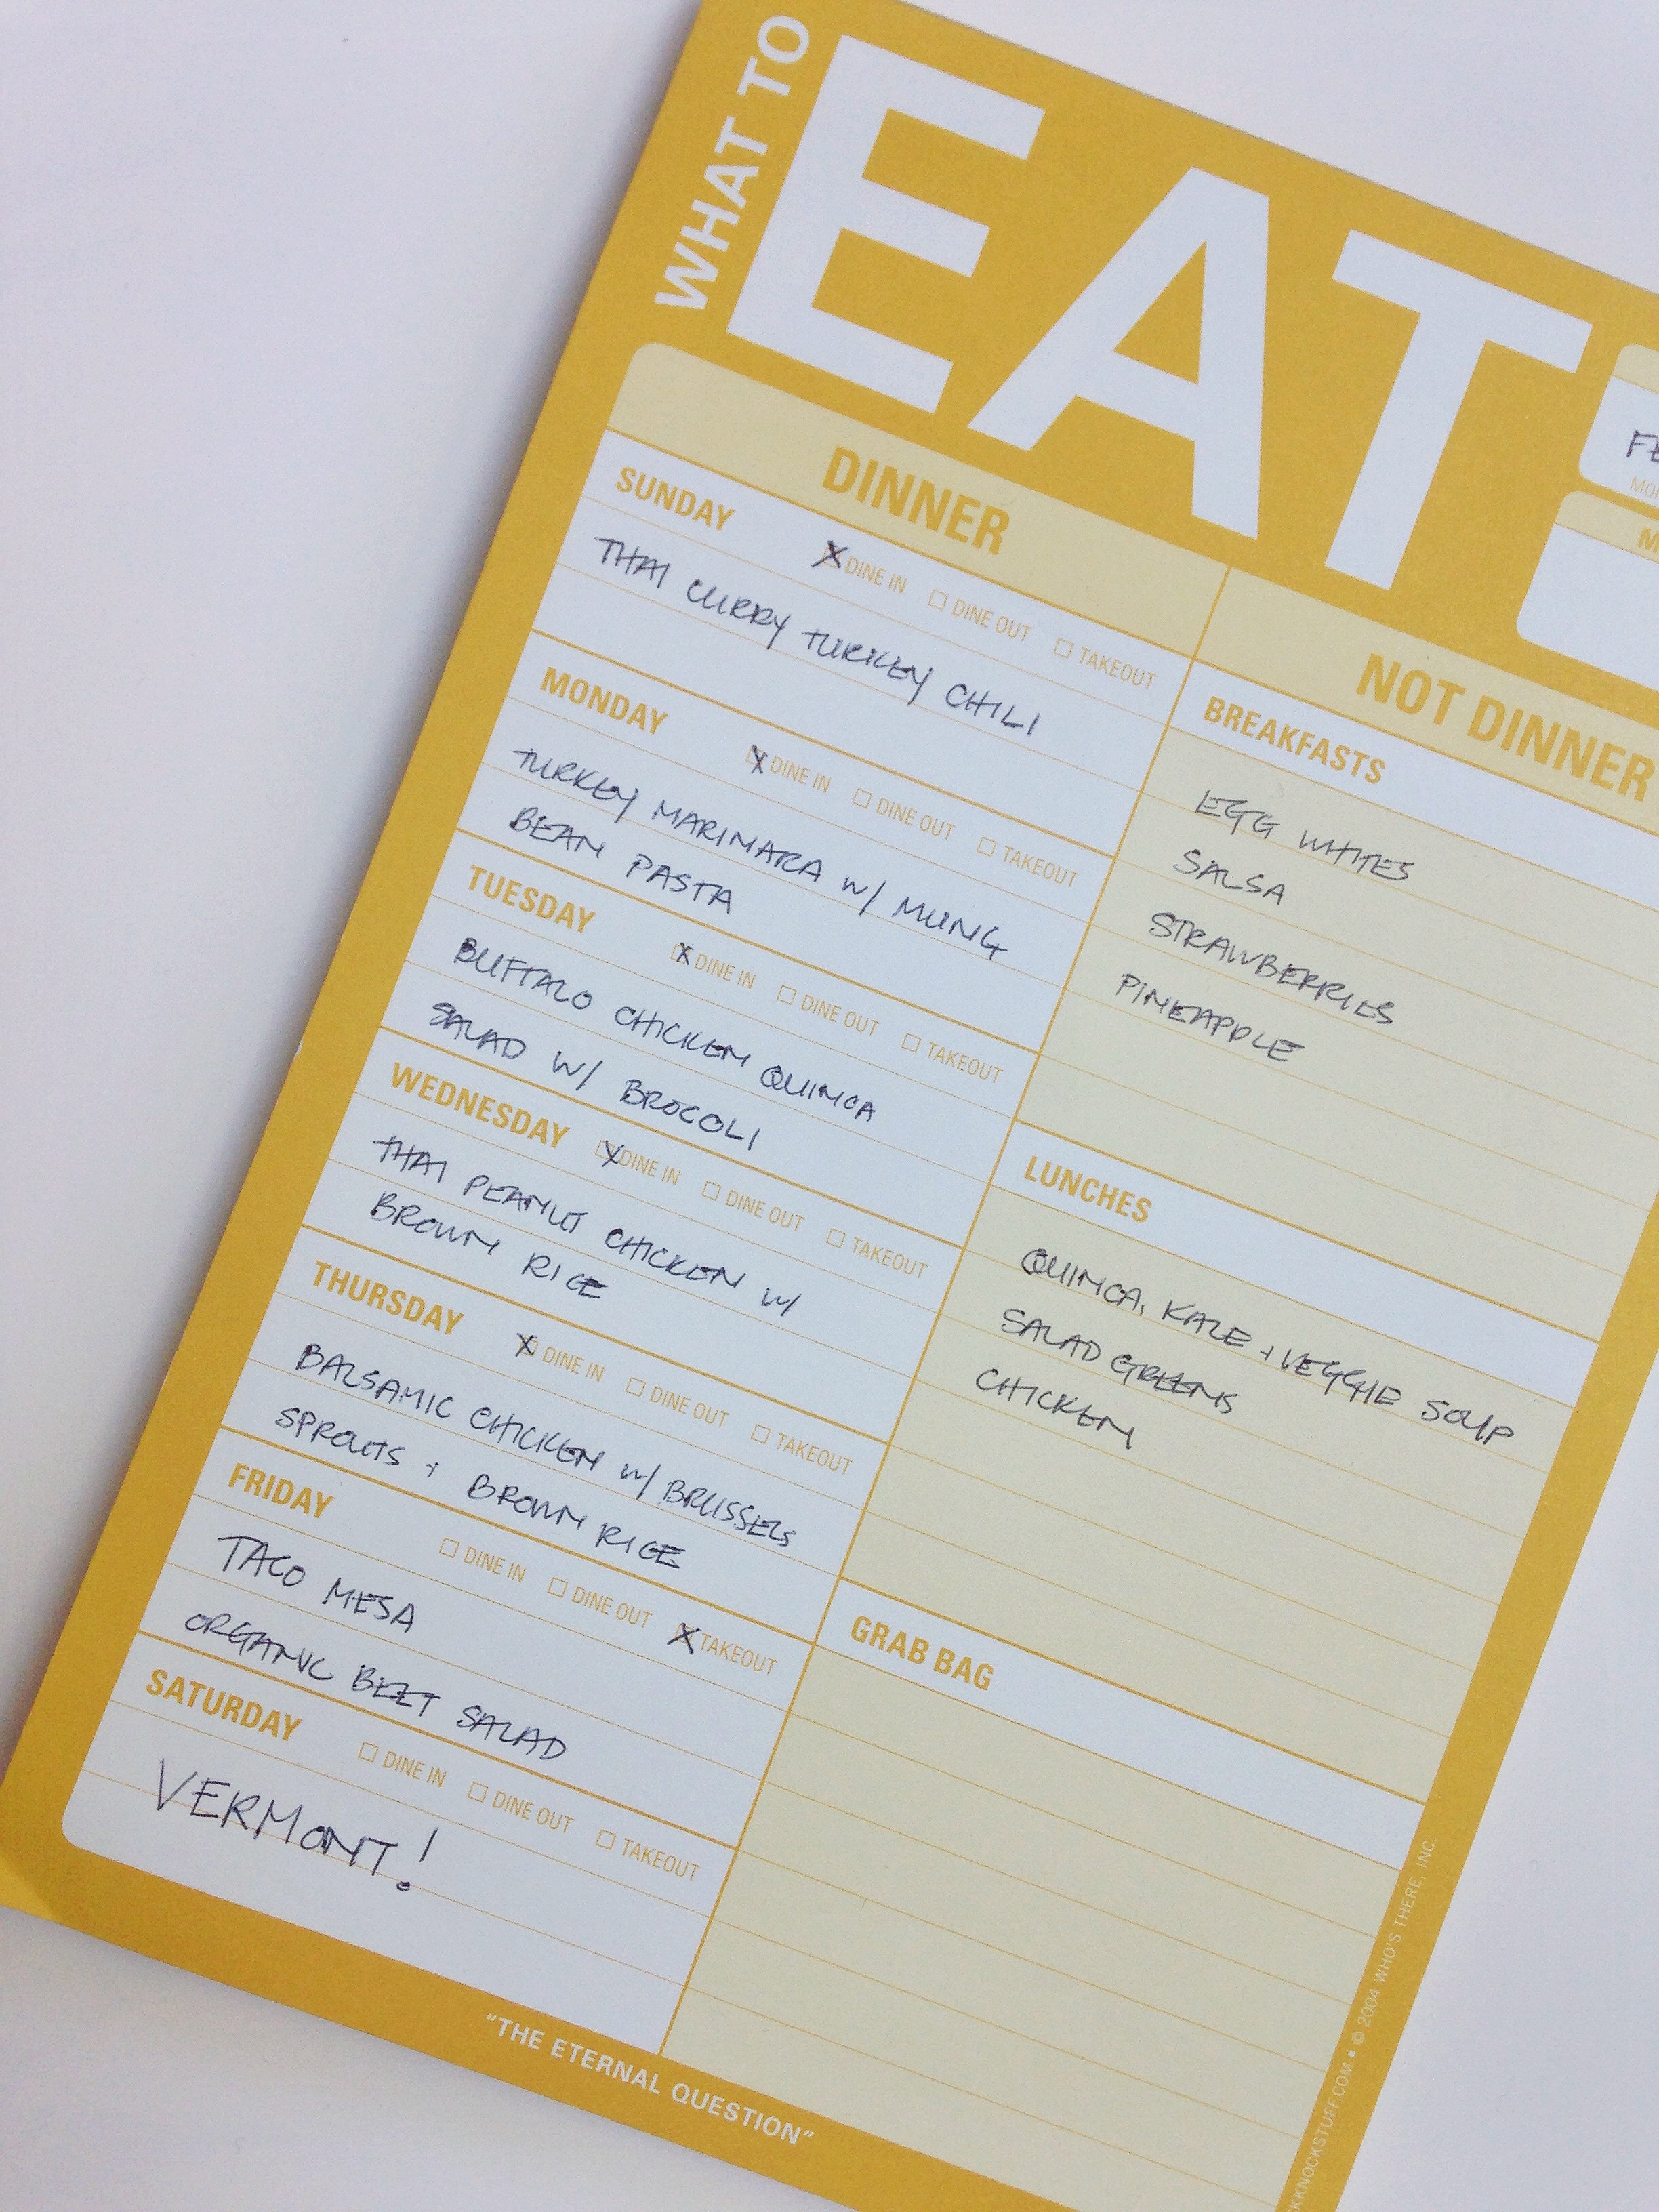 WHAT TO
EAT
FE
MO
M
DINNER
SUNDAY
X DINE IN □ DINE OUT □ TAKEOUT
THAI CURRY TURKEY CHILI
MONDAY
X DINE IN □ DINE OUT □ TAKEOUT
TURKEY MARINARA W/ MUNG
BEAN PASTA
TUESDAY
X DINE IN □ DINE OUT □ TAKEOUT
BUFFALO CHICKEN QUINOA
SALAD W/ BROCOLI
WEDNESDAY
X DINE IN □ DINE OUT □ TAKEOUT
THAI PEANUT CHICKEN W/
BROWN RICE
THURSDAY
X DINE IN □ DINE OUT □ TAKEOUT
BALSAMIC CHICKEN W/ BRUSSELS
SPROUTS + BROWN RICE
FRIDAY
□ DINE IN □ DINE OUT X TAKEOUT
TACO MESA
ORGANIC BEET SALAD
SATURDAY
□ DINE IN □ DINE OUT □ TAKEOUT
VERMONT!
NOT DINNER
BREAKFASTS
EGG WHITES
SALSA
STRAWBERRIES
PINEAPPLE
LUNCHES
QUINOA, KALE + VEGGIE SOUP
SALAD GREENS
CHICKEN
GRAB BAG
"THE ETERNAL QUESTION"
KKNOCKSTUFF.COM • © 2004 WHO'S THERE, INC.